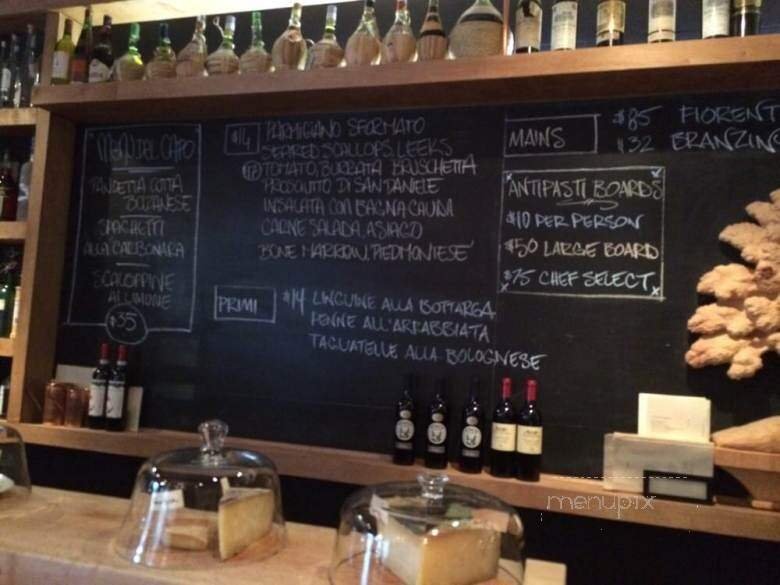 MENU DEL CAPO
PANCETTA COTTA
BOLZANESE
SPAGHETTI
ALLA CARBONARA
SCALOPPINE
AL LIMONE
$35
$14
PARMIGIANO SFORMATO
SEARED SCALLOPS, LEEKS
TOMATO, BURRATA BRUSCHETTA
PROSCIUTTO DI SAN DANIELE
INSALATA CON BAGNA CAUDA
CARNE SALADA, ASIAGO
BONE MARROW, PIEDMONTESE
PRIMI
$14 LINGUINE ALLA BOTTARGA
PENNE ALL'ARRABBIATA
TAGLIATELLE ALLA BOLOGNESE
MAINS
$85 FIORENT
$32 BRANZINO
ANTIPASTI BOARDS
$10 PER PERSON
$50 LARGE BOARD
$75 CHEF SELECT
menupix